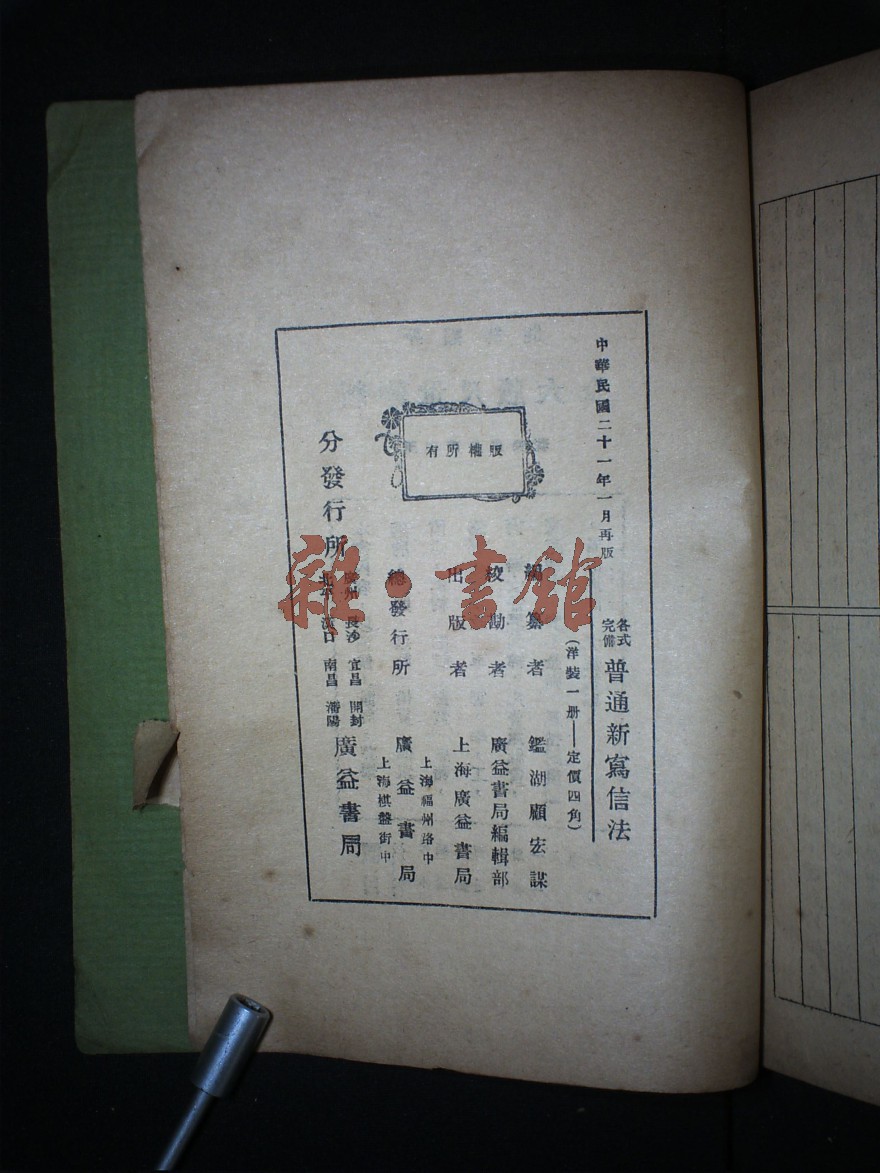 中華民國二十一年一月再版
各式
完備
普通新寫信法
(洋裝一册——定價四角)
編纂者 鑑湖顧宏謀
校勘者 廣益書局編輯部
出版者 上海廣益書局
總發行所 上海福州路中 廣益書局 上海棋盤街中
分發行所 長沙 宜昌 開封 北平 漢口 南昌 瀋陽 廣益書局
版權所有
雜·書館